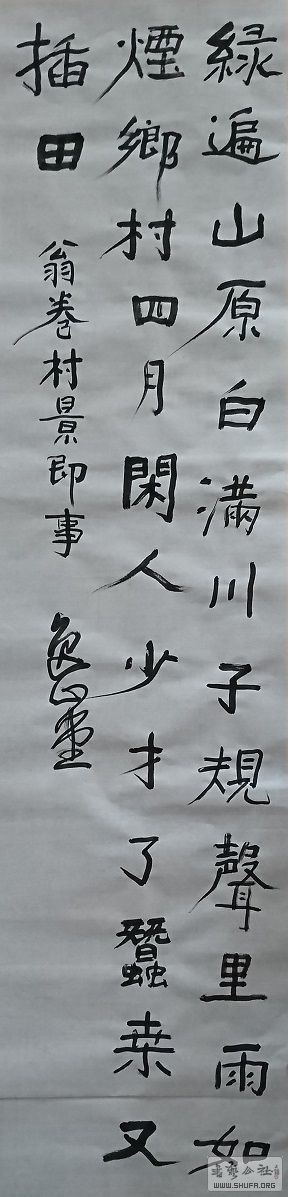 綠遍山原白滿川子規聲里雨如
煙鄉村四月閑人少才了蠶桒又
插田
翁卷村景即事
WWW.SHUFA.ORG